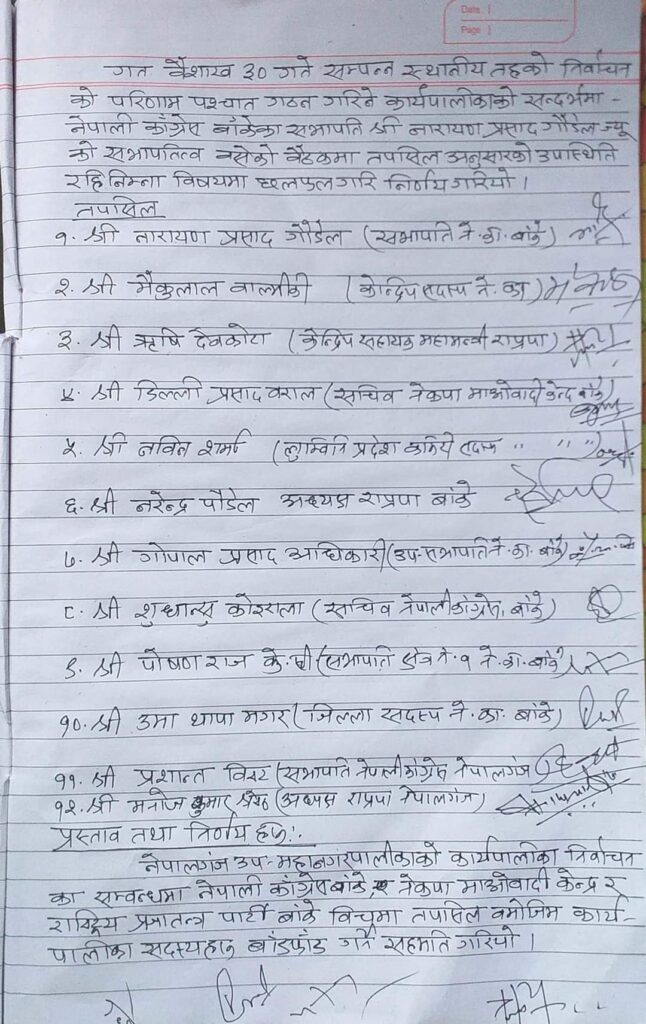 Date
Page
गत बैशाख ३० गते सम्पन्न स्थानीय तहको निर्वाचन
को परिणाम पश्चात गठन गरिने कार्यपालीकाको सन्दर्भमा -
नेपाली काँग्रेस बाँकेका सभापति श्री नारायण प्रसाद गौडेल ज्यू
को सभापतित्व बसेको बैठकमा तपसिल अनुसारको उपस्थिति
रहि निम्न विषयमा छलफल गरि निर्णय गरियो ।
तपसिल
१. श्री नारायण प्रसाद गौडेल (सभापति ने.का. बाँके)
२. श्री मैकुलाल वाल्मीकी (केन्द्रिय सदस्य ने. का)
३. श्री ऋषि देवकोटा (केन्द्रिय सहायक महामन्त्री राप्रपा)
४. श्री डिल्ली प्रसाद वराल (सचिव नेकपा माओवादी केन्द्र बाँके)
५. श्री नविन शर्मा (लुम्विनि प्रदेश कमिटी सदस्य " " ")
६. श्री नरेन्द्र पौडेल अध्यक्ष राप्रपा बाँके
७. श्री गोपाल प्रसाद अधिकारी (उप-सभापति ने. का. बाँके)
८. श्री शुधान्सु कोइराला (सचिव नेपाली काँग्रेस, बाँके)
९. श्री पोषण राज के.सी (सभापति क्षेत्र नं. १ ने. का. बाँके)
१०. श्री उमा थापा मगर (जिल्ला सदस्य ने. का. बाँके)
११. श्री प्रशान्त विस्ट (सभापति नेपाली काँग्रेस नेपालगंज)
१२. श्री मनोज कुमार श्रेष्ठ (अध्यक्ष राप्रपा नेपालगंज)
प्रस्ताव तथा निर्णय हरु:-
नेपालगंज उप-महानगरपालीकाको कार्यपालीका निर्वाचन
का सम्वन्धमा नेपाली काँग्रेस बाँके, नेकपा माओवादी केन्द्र र
राष्ट्रिय प्रजातन्त्र पार्टी बाँके विचमा तपसिल वमोजिम कार्य-
पालीका सदस्यहरु बाँडफाँड गर्ने सहमति गरियो ।